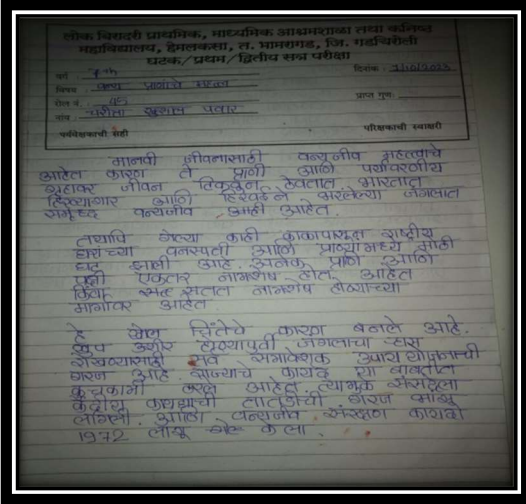 लोक बिरादरी प्राथमिक, माध्यमिक आश्रमशाळा तथा कनिष्ठ
महाविद्यालय, हेमलकसा, त. भामरागड, जि. गडचिरोली
घटक/प्रथम/द्वितीय सत्र परीक्षा
वर्ग : 7th दिनांक :
विषय वन्य प्राणीचे महत्व
रोल नं. प्राप्त गुण:
नाव पवार
पर्यवेक्षकाची सही परिक्षकाची स्वाक्षरी
मानवी जीवनासाठी वन्यजीव महत्वाचे
आहेत कारण ते प्राणी आणि पर्यावरणीय
जीवन टिकवून ठेवतात भारतात
हिरव्यागार आणि जंगलात
समृध्द वन्यजीव आहेत.
तथापि गेल्या काही काळापासून राष्ट्रीय
वनस्पती आणि प्राण्यांमध्ये मोठी
घट झाली आहे. अनेक प्राणी आणि
पक्षी एकतर नामशेष होत आहेत
किंवा सतत नामशेष होण्याच्या
मार्गावर आहेत
हे चिंतेचे कारण बनले आहे.
खुप उशीर होण्यापुर्वी जंगलाचा ऱ्हास
रोखण्यासाठी सर्व समावेशक उपाय योजनाची
गरज आहे. राज्याचे कायदे या बाबतीत
कुचकामी ठरले आहेत. त्यामुळे संसदेला
केंद्रीय कायद्याची गरज भासू
लागली. आणि वन्यजीव संरक्षण कायदा
1972 लागू केला.